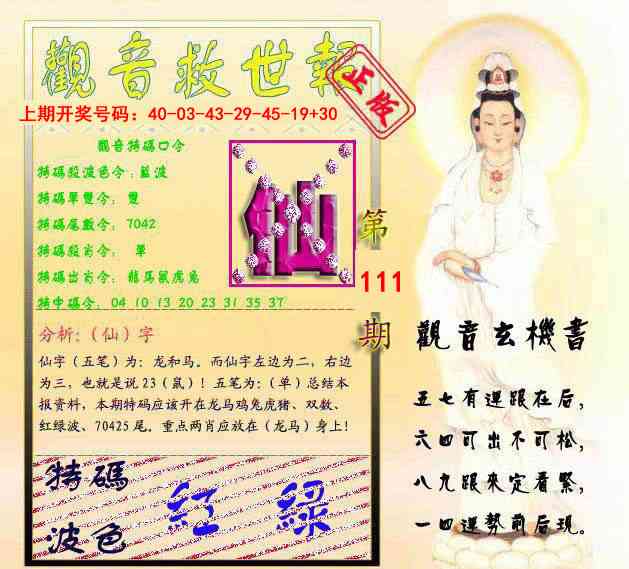 觀音救世報
正版
上期开奖号码：40-03-43-29-45-19+30
觀音特碼口令
特碼殺波色令：藍波
特碼單雙令：雙
特碼尾數令：7042
特碼殺肖令：單
特碼出肖令：龍馬鼠虎兔
特中碼令：04 10 13 20 23 31 35 37
仙
第
111
期
分析:（仙）字
仙字（五笔）为：龙和马。而仙字左边为二，右边
为三，也就是说 23（鼠）！五笔为：（单）总结本
报资料，本期特码应该开在龙马鸡兔虎猪、双数、
红绿波、70425 尾。重点两肖应放在（龙马）身上！
特碼
波色
红 綠
觀音玄機書
五七有運跟在后，
六四可出不可松，
八九跟來定看緊，
一四運勢前后现。